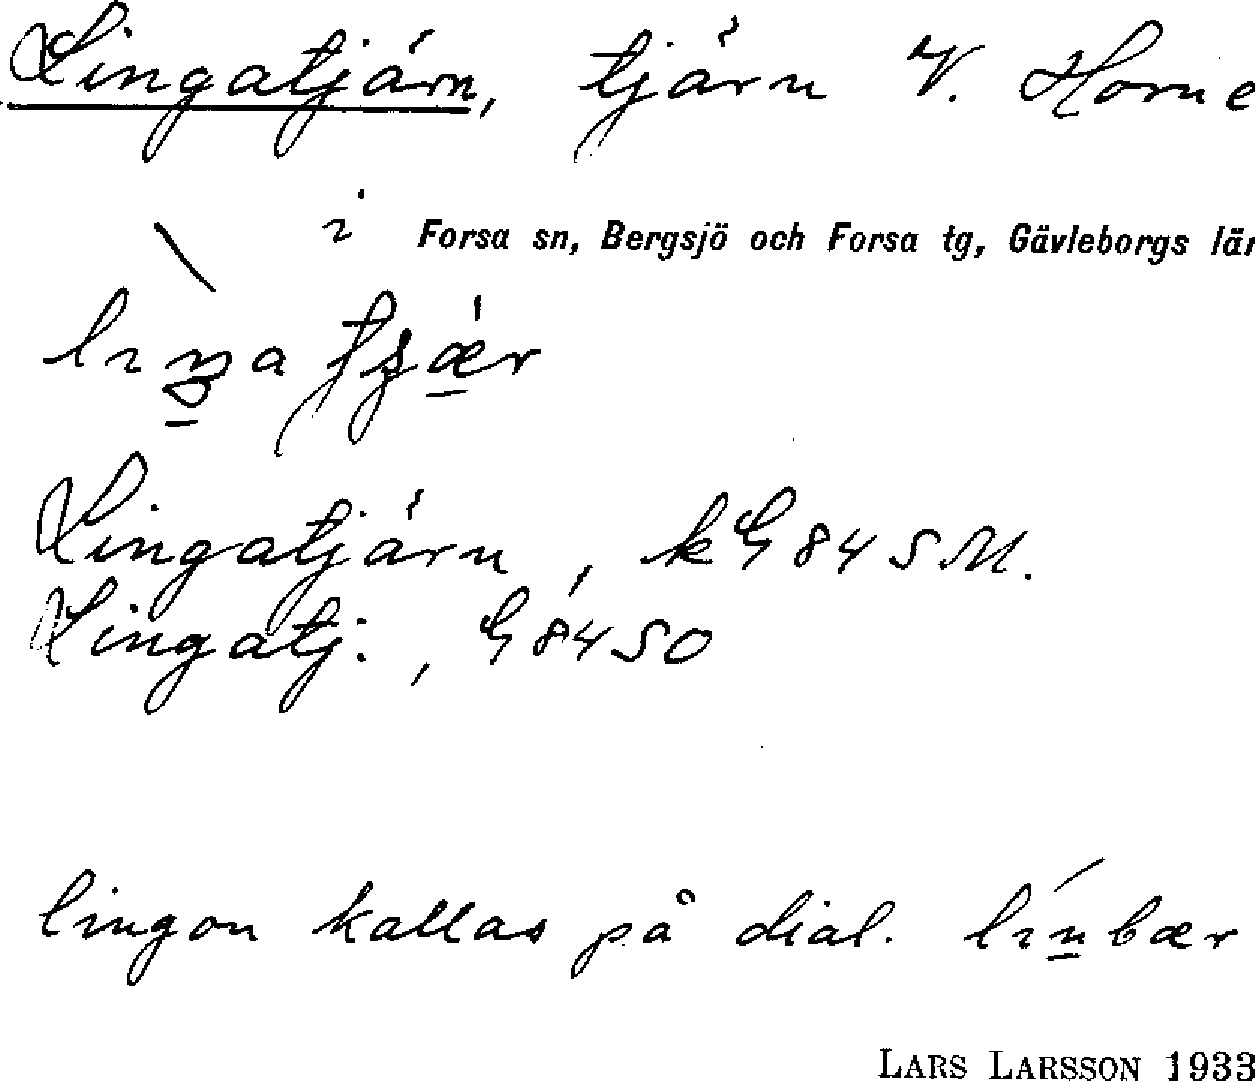 Lingatjärn, tjärn V. Horne
i Forsa sn, Bergsjö och Forsa tg, Gävleborgs län
Lingatjärn, kG 84 SM.
Lingatj:, G 84 SO
lingon kallas på dial. lınbær
LARS LARSSON 1933